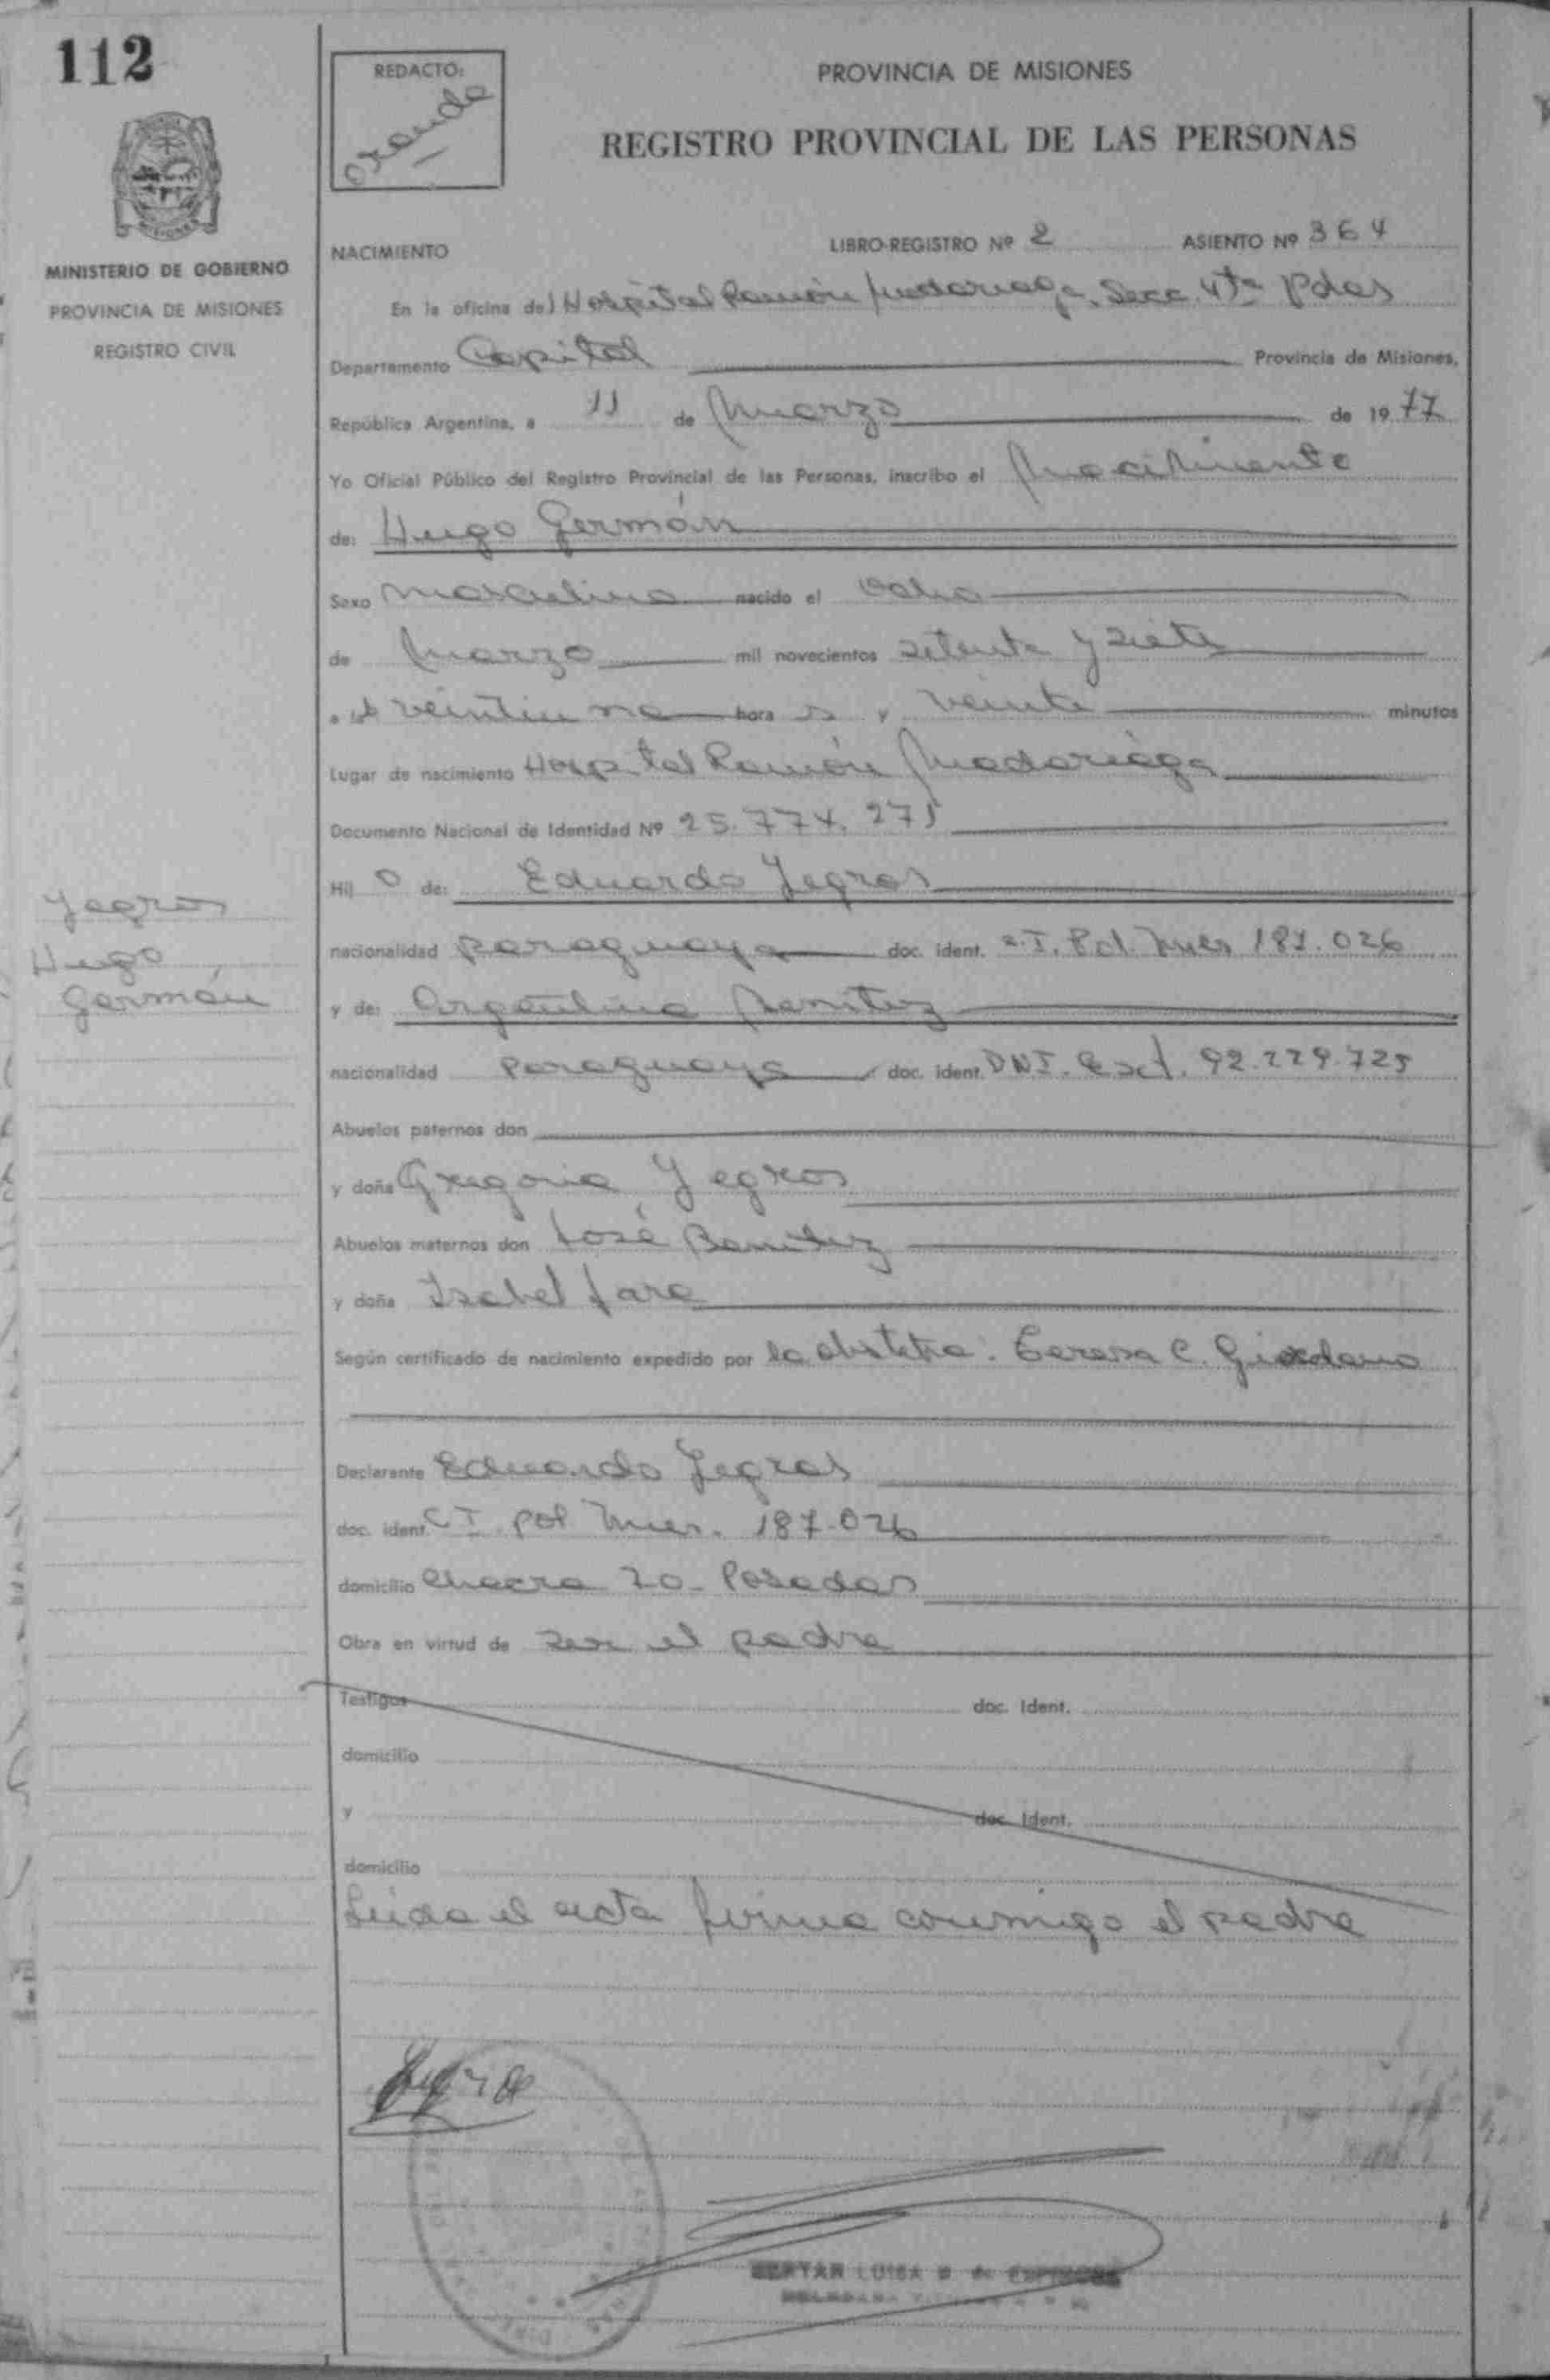 112
REDACTO:
PROVINCIA DE MISIONES
REGISTRO PROVINCIAL DE LAS PERSONAS
MINISTERIO DE GOBIERNO
PROVINCIA DE MISIONES
REGISTRO CIVIL
NACIMIENTO LIBRO-REGISTRO Nº 2 ASIENTO Nº 364
En la oficina del Hospital Ramón Madariaga. Secc. 4ta Pdas
Departamento Capital Provincia de Misiones,
República Argentina, a 11 de Marzo de 1977
Yo Oficial Público del Registro Provincial de las Personas, inscribo el Nacimiento
de: Hugo Germán
Sexo masculino nacido el ocho
de Marzo mil novecientos setenta y siete
a las veintiuna hora s y veinte minutos
Lugar de nacimiento Hospital Ramón Madariaga
Documento Nacional de Identidad Nº 25.774.275
Hij o de: Eduardo Yegros
nacionalidad paraguaya doc. ident. C.I. Pol. Mnes 187.026
y de: Argentina Benitez
nacionalidad Paraguaya doc. ident. DNI. Ext. 92.229.725
Abuelos paternos don
y doña Gregoria Yegros
Abuelos maternos don José Benitez
y doña Isabel Jara
Según certificado de nacimiento expedido por la obstetra: Teresa C. Giordano
Yegros
Hugo
Germán
Declarante Eduardo Yegros
doc. ident. CI pol Mnes. 187.026
domicilio Chacra 20- Posadas
Obra en virtud de ser el padre
Testigos doc. Ident.
domicilio
y doc. Ident.
domicilio
Leida el acta firma conmigo el padre
LUISA